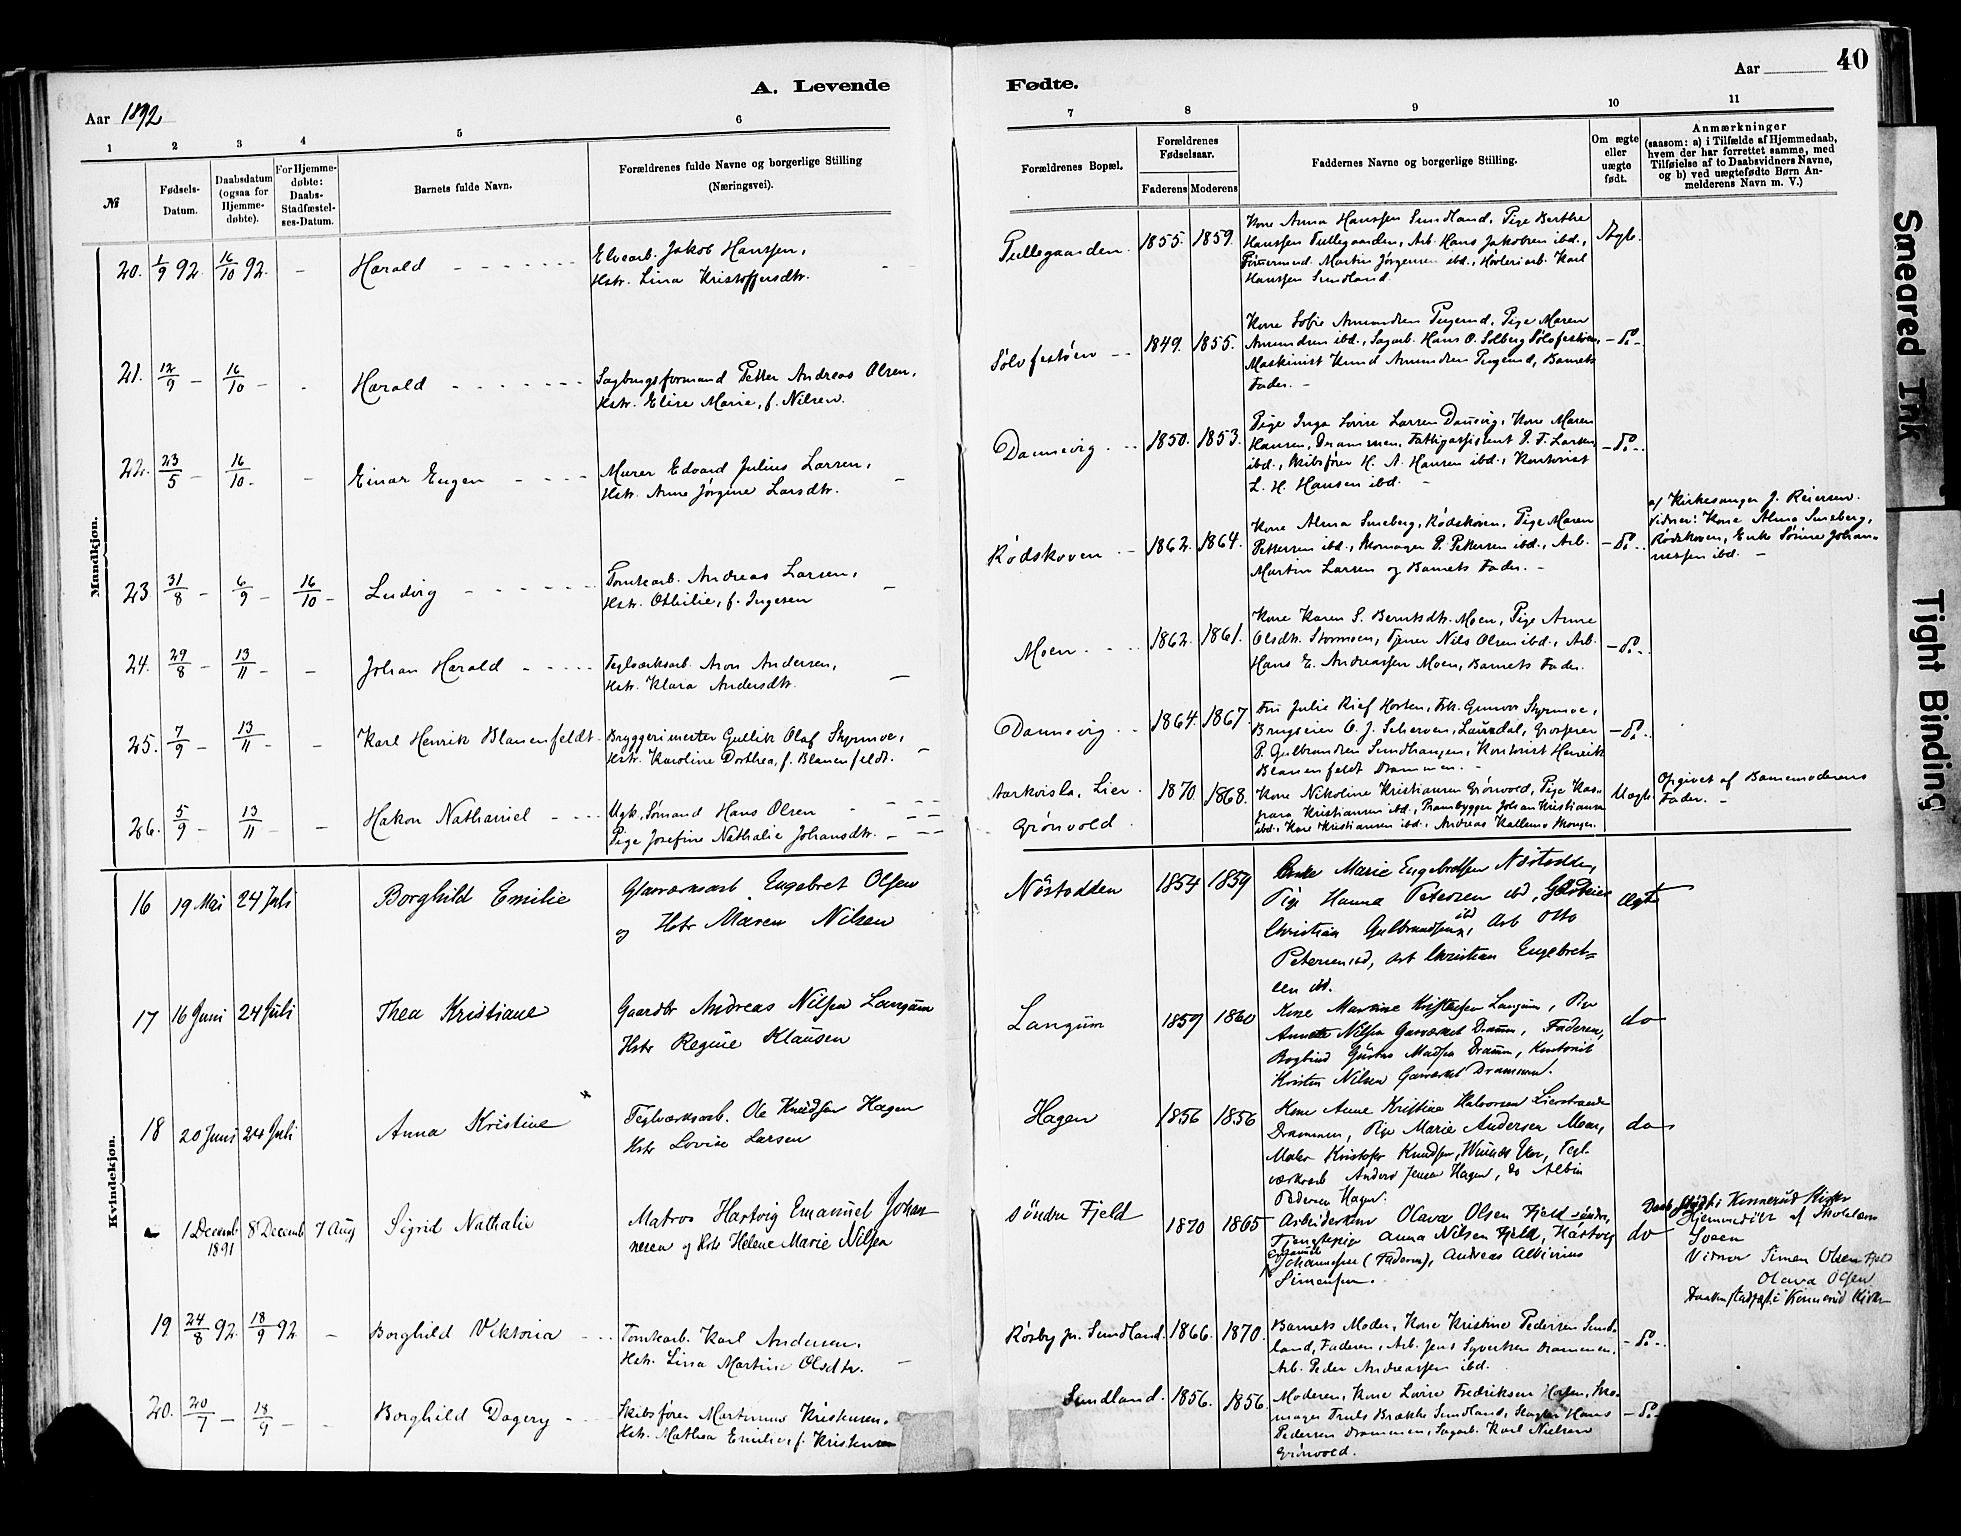 40
A. Levende
Fødte.
Aar 1892
Aar
1 2 3 4 5 6
7 8 9 10 11
№
Fødsels-
Datum.
Daabsdatum
(ogsaa for
Hjemme-
døbte).
For Hjemme-
døbte:
Daabs-
Stadfæstel-
ses-Datum.
Barnets fulde Navn.
Forældrenes fulde Navne og borgerlige Stilling
(Næringsvei).
Forældrenes Bopæl.
Forældrenes
Fødselsaar.
Faderens Moderens
Faddernes Navne og borgerlige Stilling.
Om ægte
eller
uægte
født.
Anmærkninger
(saasom: a) i Tilfælde af Hjemmedaab,
hvem der har forrettet samme, med
Tilføielse af to Daabsvidners Navne,
og b) ved uægtefødte Børn An-
melderens Navn m. V.)
Mandkjøn.
20. 1/9 92. 16/10 92. - Harald
Elvearb. Jakob Hanssen,
Hstr. Lina Kristoffersdtr.
Tullegaarden. 1855. 1859.
Kone Anna Hanssen Sundland, Pige Berthe
Hanssen Tullegaarden, Arb. Hans Jakobsen ibd.,
Martin Jørgensen ibd., Høvleriarb. Karl
Hanssen Sundland.
Ægte.
21. 12/9 - 16/10 - - Harald
Sagbrugsformand Petter Andreas Olsen,
Hstr. Elise Marie, f. Nilsen.
Sølvfestøen 1849. 1855.
Kone Sofie Amundsen Tegend, Pige Maren
Amundsen ibd., Sagarb. Hans O. Solberg Sølvfestøen,
Maskinist Knud Amundsen Tegend, Barnets
Fader. -
- Do -
22. 23/5 - 16/10 - - Einar Eugen
Murer Edvard Julius Larsen,
Hstr. Anne Jørgine Larsdtr.
Damsvig. 1850. 1853.
Pige Inga Lovise Larsen Damsvig, Kone Maren
Hansen, Drammen, Fattigassistent P. T. Larsen
ibd., Skibsfører H. A. Hansen ibd., Kontorist
L. H. Hansen ibd. -
- Do -
23 31/8 - 6/9 - 16/10 - Ludvig
Tomtearb. Andreas Larsen,
Hstr. Othilie, f. Ingesen
Rødskoven 1862. 1864.
Kone Alma Smeberg, Rødskoven, Pige Maren
Pettersen ibd., Skomager P. Pettersen ibd., Arb.
Martin Larsen og Barnets Fader. -
- Do -
af Kirkesanger J. Reiersen.
Vidner: Kone Alma Smeberg,
Rødskoven, Enke Sørine Johan-
nessen ibd. -
24. 29/8 - 13/11 - - Johan Harald
Teglværksarb. Aron Andersen,
Hstr. Klara Andersdtr.
Moen. 1862. 1861.
Kone Karen S. Berntsdtr. Moen, Pige Anne
Olsdtr. Stormoen, Tjener Nils Olsen ibd., Arb.
Hans E. Andreassen Moen, Barnets Fader.
- Do -
25. 7/9 - 13/11 - - Karl Henrik Blauenfeldt
Bryggerimester Gullik Olaf Skjermoe,
Hstr. Karoline Dorthea, f. Blauenfeldt.
Damsvig 1864. 1867.
Fru Julie Rief Horten, Frk. Gunvor Skjermoe,
Brugseier O. J. Scherven, Lauvdal, Grosserer
P. Gulbrandsen Sundhaugen, Kontorist Henrik
Blauenfeldt Drammen. -
- Do -
26. 5/9 - 13/11 - - Hakon Nathaniel
Ugk. Sømand Hans Olsen
Pige Josefine Nathalie Johansdtr.
Aarkvisla, Lier.
Grønvold. 1870 1868.
Kone Nikoline Kristiansen Grønvold, Pige Kas-
para Kristiansen ibd., Prambygger Johan Kristiansen
ibd., Kare Kristiansen ibd., Andreas Kallem
Uægte.
Opgivet af Barnemoderens
Fader. -
Kvindekjøn.
16 19 Mai 24 Juli Borghild Emilie
Glasværksarb Engebret Olsen
og Hstr Maren Nilsen
Nøstodden 1854 1859
Enke Marie Engebretsen Nøstodden,
Pige Hanna Petersen ibd, Gaardeier
Christian Gulbrandsen ibd, Arb Otto
Petersen ibd, Arb Christian Engebret-
sen ibd.
Ægte
17 16 Juni 24 Juli Thea Kristiane
Gaardbr Andreas Nilsen Langum
Hstr Regine Klausen
Langum 1859 1860
Kone Martine Kristensen Langum,
Annette Nilsen Gasværket Dramm, Faderen,
Bogbind Gustav Madsen Dramm, Kontorist
Kristen Nilsen Gasværket Drammen.
do
18 20 Juni 24 Juli Anna Kristine
Teglværksarb. Ole Knudsen Hagen
Hstr Lovise Larsen
Hagen 1856 1856
Kone Anne Kristine Halvorsen Lierstrand
Drammen, Pige Marie Andersen Moen,
Maler Kristofer Knudsen, Tegl-
værksarb Anders Jensen Hagen, do Albin
Pedersen Hagen.
do
1 Decemb 1891 8 Decemb 7 Aug Sigrid Nathalie
Matros Hartvig Emanuel Johan-
nesen og Hstr Helene Marie Nilsen
Søndre Fjeld 1870 1865
Arbeiderkone Olava Olsen Fjeld søndre,
Tjenestepige Anna Nilsen Fjeld, Hartvig
Emanuel
Johannessen (Faderen), Andreas Albinius
Simensen.
do
Daab stadf. i Konnerud Kirke
Hjemmedøbt af Skolelærer
Sveen
Vidner Simen Olsen Fjeld
Olava Olsen
Daaben stadfæst i Konnerud Kirke
19 24/8 92. 18/9 92. - Borghild Viktoria
Tomtearb. Karl Andersen.
Hstr. Lina Martine Olsdtr.
Røsby pr. Sundland. 1866. 1870.
Barnets Moder, Kone Kristine Pedersen Sund-
land, Faderen, Arb. Jens Syvertsen Drammen,
Arb. Peder Andreassen ibd.
- Do -
20. 20/7 - 18/9 - - Borghild Dagny
Skibsfører Martinius Kristensen,
Hstr. Mathea Emilie, f. Kristensen
Sundland. 1856. 1856.
Moderen, Kone Lovise Fredriksen Horten, Sko-
mager Truls Brække Sundland, Slagter Hans
Pedersen Drammen, Sagarb. Karl Nielsen
Grønvold.
- Do -
Smeared Ink
Tight Binding